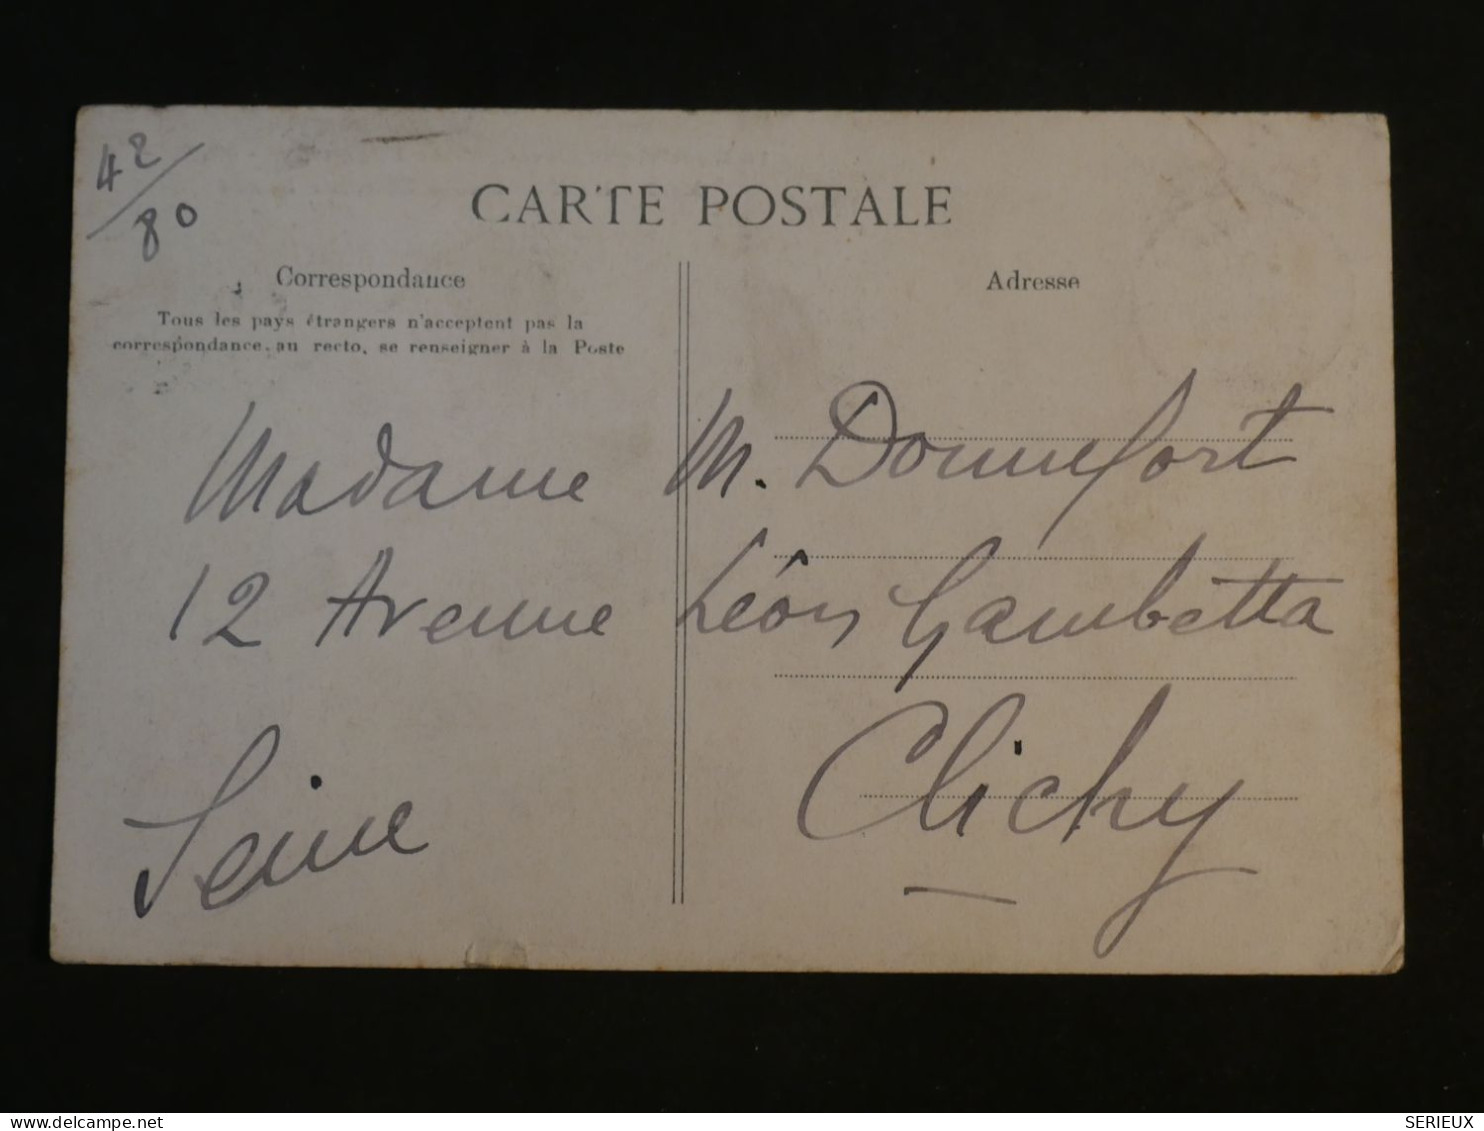 42/80
CARTE POSTALE
Correspondance
Adresse
Tous les pays étrangers n'acceptent pas la
correspondance au recto, se renseigner à la Poste
Madame M. Donnefort
12 Avenue Léon Gambetta
Seine Clichy
SERIEUX